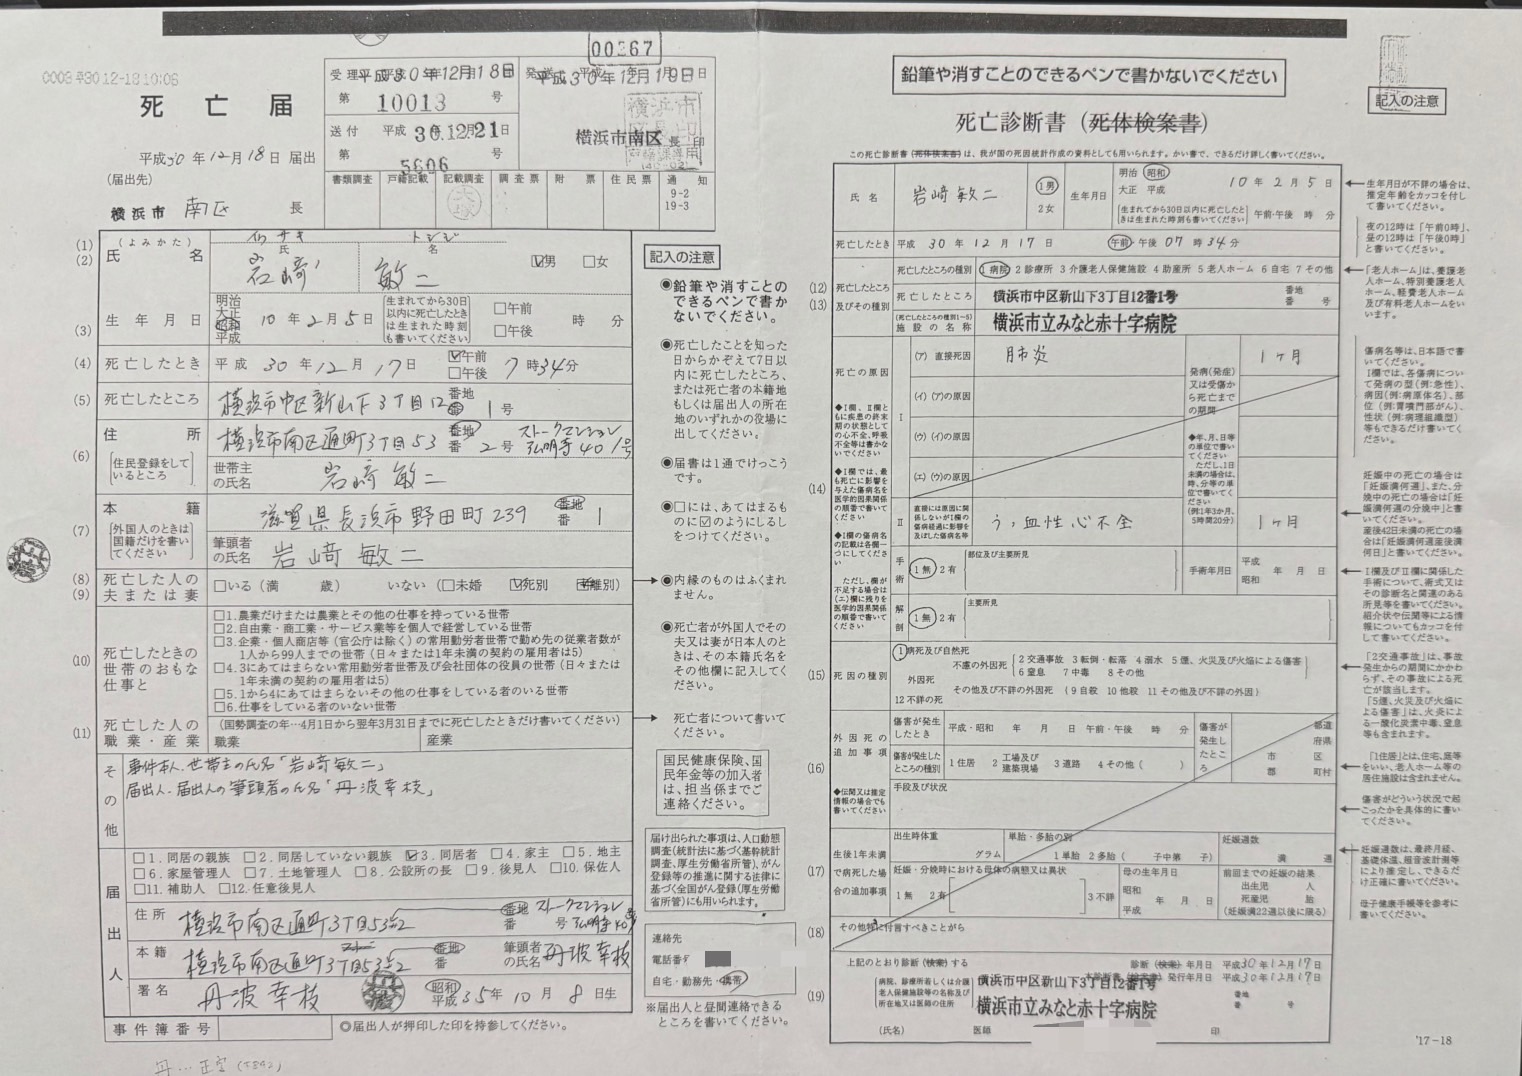 00367
0003 平30 12-18 10:06
死亡届
受理 平成30年12月18日
第 10013 号
発送 平成30年12月19日
送付 平成 30.12.21日
第 5606 号
横浜市南区長 印
平成30年12月18日 届出
(届出先)
横浜市 南区 長
書類調査 戸籍記載 記載調査 調査票 附票 住民票 通知
9-2
19-3
(1)
(2)
(よみかた) イワサキ トシジ
氏名 氏 岩﨑 名 敏二 ☑男 □女
(3)
生年月日 明治 大正 昭和 平成 10年2月5日
生まれてから30日以内に死亡したときは生まれた時刻も書いてください
□午前 □午後 時 分
(4) 死亡したとき 平成30年12月17日 ☑午前 □午後 7時34分
(5) 死亡したところ 横浜市中区新山下3丁目12 番地 番 1号
(6) 住所 横浜市南区通町3丁目53 番地 番 2号 ストークマンション弘明寺401号
(住民登録をしているところ) 世帯主の氏名 岩﨑敏二
(7) 本籍 滋賀県長浜市野田町239 番地 番 1
(外国人のときは国籍だけを書いてください) 筆頭者の氏名 岩﨑敏二
(8)
(9)
死亡した人の夫または妻 □いる(満 歳) いない(□未婚 ☑死別 □離別)
(10) 死亡したときの世帯のおもな仕事と
□1.農業だけまたは農業とその他の仕事を持っている世帯
□2.自由業・商工業・サービス業等を個人で経営している世帯
□3.企業・個人商店等(官公庁は除く)の常用勤労者世帯で勤め先の従業者数が
1人から99人までの世帯(日々または1年未満の契約の雇用者は5)
□4.3にあてはまらない常用勤労者世帯及び会社団体の役員の世帯(日々または
1年未満の契約の雇用者は5)
□5.1から4にあてはまらないその他の仕事をしている者のいる世帯
□6.仕事をしている者のいない世帯
(11) 死亡した人の職業・産業
(国勢調査の年…4月1日から翌年3月31日までに死亡したときだけ書いてください)
職業 産業
その他
事件本人.世帯主の氏名「岩﨑敏二」
届出人.届出人の筆頭者の氏名「丹波幸枝」
届出人
□1.同居の親族 □2.同居していない親族 ☑3.同居者 □4.家主 □5.地主
□6.家屋管理人 □7.土地管理人 □8.公設所の長 □9.後見人 □10.保佐人
□11.補助人 □12.任意後見人
住所 横浜市南区通町3丁目53-2 番地 番 号 ストークマンション
本籍 横浜市南区通町3丁目53-2 番地 番 筆頭者の氏名 丹波幸枝
署名 丹波幸枝 印 昭和 平成 35年10月8日生
事件簿番号
◎届出人が押印した印を持参してください。
記入の注意
◉鉛筆や消すことのできるペンで書かないでください。
◉死亡したことを知った日からかぞえて7日以内に死亡したところ、または死亡者の本籍地もしくは届出人の所在地のいずれかの役場に出してください。
◉届書は1通でけっこうです。
◉□には、あてはまるものに☑のようにしるしをつけてください。
◉内縁のものはふくまれません。
◉死亡者が外国人でその夫又は妻が日本人のときは、その本籍氏名をその他欄に記入してください。
死亡者について書いてください。
国民健康保険、国民年金等の加入者は、担当係までご連絡ください。
届け出られた事項は、人口動態調査(統計法に基づく基幹統計調査、厚生労働省所管)、がん登録等の推進に関する法律に基づく全国がん登録(厚生労働省所管)にも用いられます。
連絡先
電話番号
自宅・勤務先・携帯
※届出人と昼間連絡できるところを書いてください。
鉛筆や消すことのできるペンで書かないでください
記入の注意
死亡診断書(死体検案書)
この死亡診断書(死体検案書)は、我が国の死因統計作成の資料としても用いられます。かい書で、できるだけ詳しく書いてください。
氏名 岩﨑敏二 1男 2女 生年月日 明治 昭和 大正 平成 10年2月5日
生まれてから30日以内に死亡したときは生まれた時刻も書いてください 午前・午後 時 分
死亡したとき 平成30年12月17日 午前・午後 07時34分
(12)
(13)
死亡したところ及びその種別
死亡したところの種別 1病院 2診療所 3介護老人保健施設 4助産所 5老人ホーム 6自宅 7その他
死亡したところ 横浜市中区新山下3丁目12番1号 番地 番 号
(死亡したところの種別1~5)施設の名称 横浜市立みなと赤十字病院
(14) 死亡の原因
I
(ア)直接死因 肺炎 1ヶ月
(イ)(ア)の原因
(ウ)(イ)の原因
(エ)(ウ)の原因
発病(発症)又は受傷から死亡までの期間
◆年、月、日等の単位で書いてください ただし、1日未満の場合は、時、分等の単位で書いてください(例:1年3か月、5時間20分)
II 直接には死因に関係しないがI欄の傷病経過に影響を及ぼした傷病名等 うっ血性心不全 1ヶ月
◆I欄、II欄ともに疾患の終末期の状態としての心不全、呼吸不全等は書かないでください
◆I欄では、最も死亡に影響を与えた傷病名を医学的因果関係の順番で書いてください
◆I欄の傷病名の記載は各欄一つにしてください
ただし、欄が不足する場合は(エ)欄に残りを医学的因果関係の順番で書いてください
手術 1無 2有 部位及び主要所見 手術年月日 平成 昭和 年 月 日
解剖 1無 2有 主要所見
(15) 死因の種別
1病死及び自然死
外因死 不慮の外因死 2交通事故 3転倒・転落 4溺水 5煙、火災及び火焔による傷害
6窒息 7中毒 8その他
その他及び不詳の外因死(9自殺 10他殺 11その他及び不詳の外因)
12不詳の死
(16) 外因死の追加事項
傷害が発生したとき 平成・昭和 年 月 日 午前・午後 時 分
傷害が発生したところの種別 1住居 2工場及び建築現場 3道路 4その他( )
傷害が発生したところ 都道府県 市 区 郡 町村
手段及び状況
◆伝聞又は推定情報の場合でも書いてください
(17) 生後1年未満で病死した場合の追加事項
出生時体重 グラム
単胎・多胎の別 1単胎 2多胎( 子中第 子)
妊娠週数 満 週
妊娠・分娩時における母体の病態又は異状 1無 2有 3不詳
母の生年月日 昭和 平成 年 月 日
前回までの妊娠の結果 出生児 人 死産児 胎 (妊娠満22週以後に限る)
(18) その他特に付言すべきことがら
(19) 上記のとおり診断(検案)する 診断(検案)年月日 平成30年12月17日
本診断書(検案書)発行年月日 平成30年12月17日
病院、診療所若しくは介護老人保健施設等の名称及び所在地又は医師の住所
横浜市中区新山下3丁目12番1号 番地 番 号
横浜市立みなと赤十字病院
(氏名) 医師 印
生年月日が不詳の場合は、推定年齢をカッコを付して書いてください。
夜の12時は「午前0時」、昼の12時は「午後0時」と書いてください。
「老人ホーム」は、養護老人ホーム、特別養護老人ホーム、軽費老人ホーム及び有料老人ホームをいいます。
傷病名等は、日本語で書いてください。
I欄では、各傷病について発病の型(例:急性)、病因(例:病原体名)、部位(例:胃噴門部がん)、性状(例:病理組織型)等もできるだけ書いてください。
妊娠中の死亡の場合は「妊娠満何週」、また、分娩中の死亡の場合は「妊娠満何週の分娩中」と書いてください。
産後42日未満の死亡の場合は「妊娠満何週産後満何日」と書いてください。
I欄及びII欄に関係した手術について、術式又はその診断名と関連のある所見等を書いてください。紹介状や伝聞等による情報についてもカッコを付して書いてください。
「2交通事故」は、事故発生からの期間にかかわらず、その事故による死亡が該当します。
「5煙、火災及び火焔による傷害」は、火災による一酸化炭素中毒、窒息等も含まれます。
「1住居」とは、住宅、庭等をいい、老人ホーム等の居住施設は含まれません。
傷害がどういう状況で起こったかを具体的に書いてください。
妊娠週数は、最終月経、基礎体温、超音波計測等により推定し、できるだけ正確に書いてください。
母子健康手帳等を参考に書いてください。
'17-18